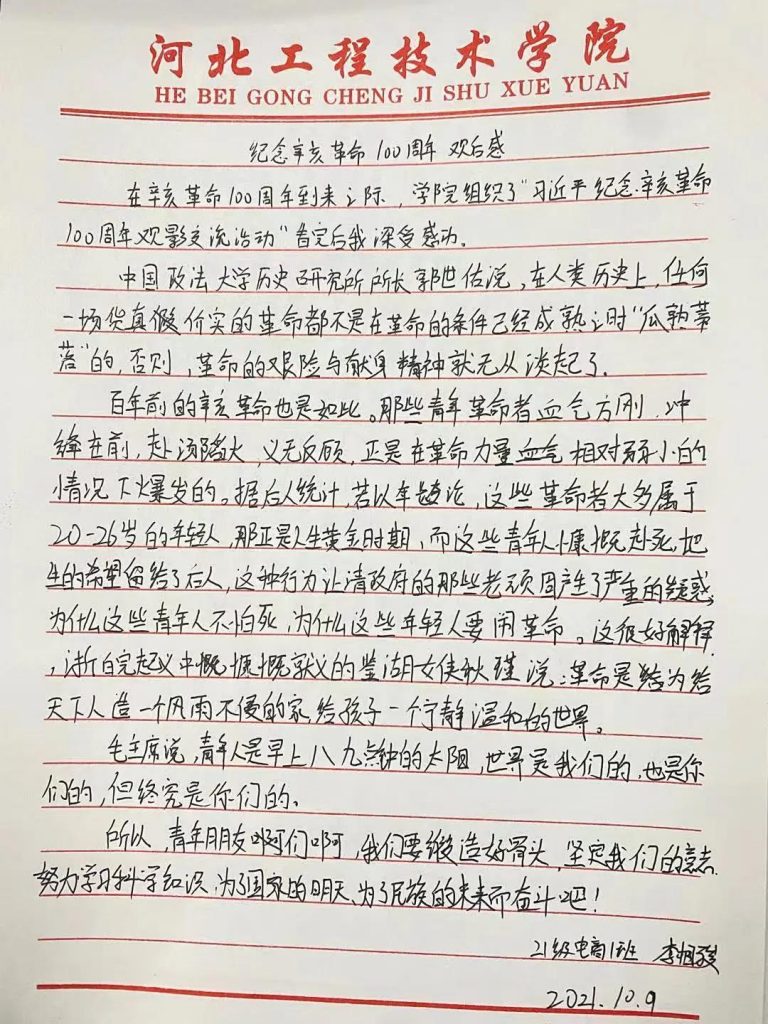 河北工程技术学院
HE BEI GONG CHENG JI SHU XUE YUAN
纪念辛亥革命100周年 观后感
在辛亥革命100周年到来之际，学院组织了"习近平纪念辛亥革命
100周年观影交流活动"看完后我深受感动。
中国政法大学历史研究所所长郭世佑说，在人类历史上，任何
一场货真假价实的革命都不是在革命的条件已经成熟之时"瓜熟蒂
落"的，否则，革命的艰险与献身精神就无从谈起了。
百年前的辛亥革命也是如此。那些青年革命者血气方刚，冲
锋在前，赴汤蹈火，义无反顾，正是在革命力量血气相对弱小的
情况下爆发的。据后人统计，若以年龄论，这些革命者大多属于
20-26岁的年轻人，那正是人生黄金时期，而这些青年人慷慨赴死把
生的希望留给了后人，这种行为让清政府的那些老顽固产生了严重的疑惑，
为什么这些青年人不怕死，为什么这些年轻人要闹革命。这很好解释
，浙皖起义中慨慷慨就义的鉴湖女侠秋瑾说：革命是为给
天下人造一个风雨不侵的家给孩子一个宁静温和的世界。
毛主席说，青年人是早上八九点钟的太阳，世界是我们的，也是你
们的，但终究是你们的。
所以，青年朋友啊们啊，我们要锻造好骨头，坚定我们的意志，
努力学习科学知识，为了国家的明天、为了民族的未来而奋斗吧！
21级电商1班 李
2021.10.9